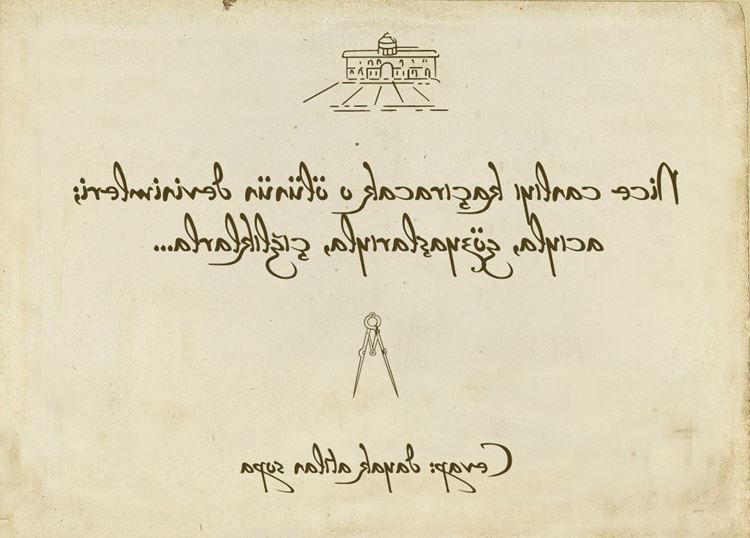 Nice canlıyı kaçıracak o ölünün devinimleri;
acıyla, gözyaşlarıyla, çığlıklarla...
Cevap: dayak atılan sopa